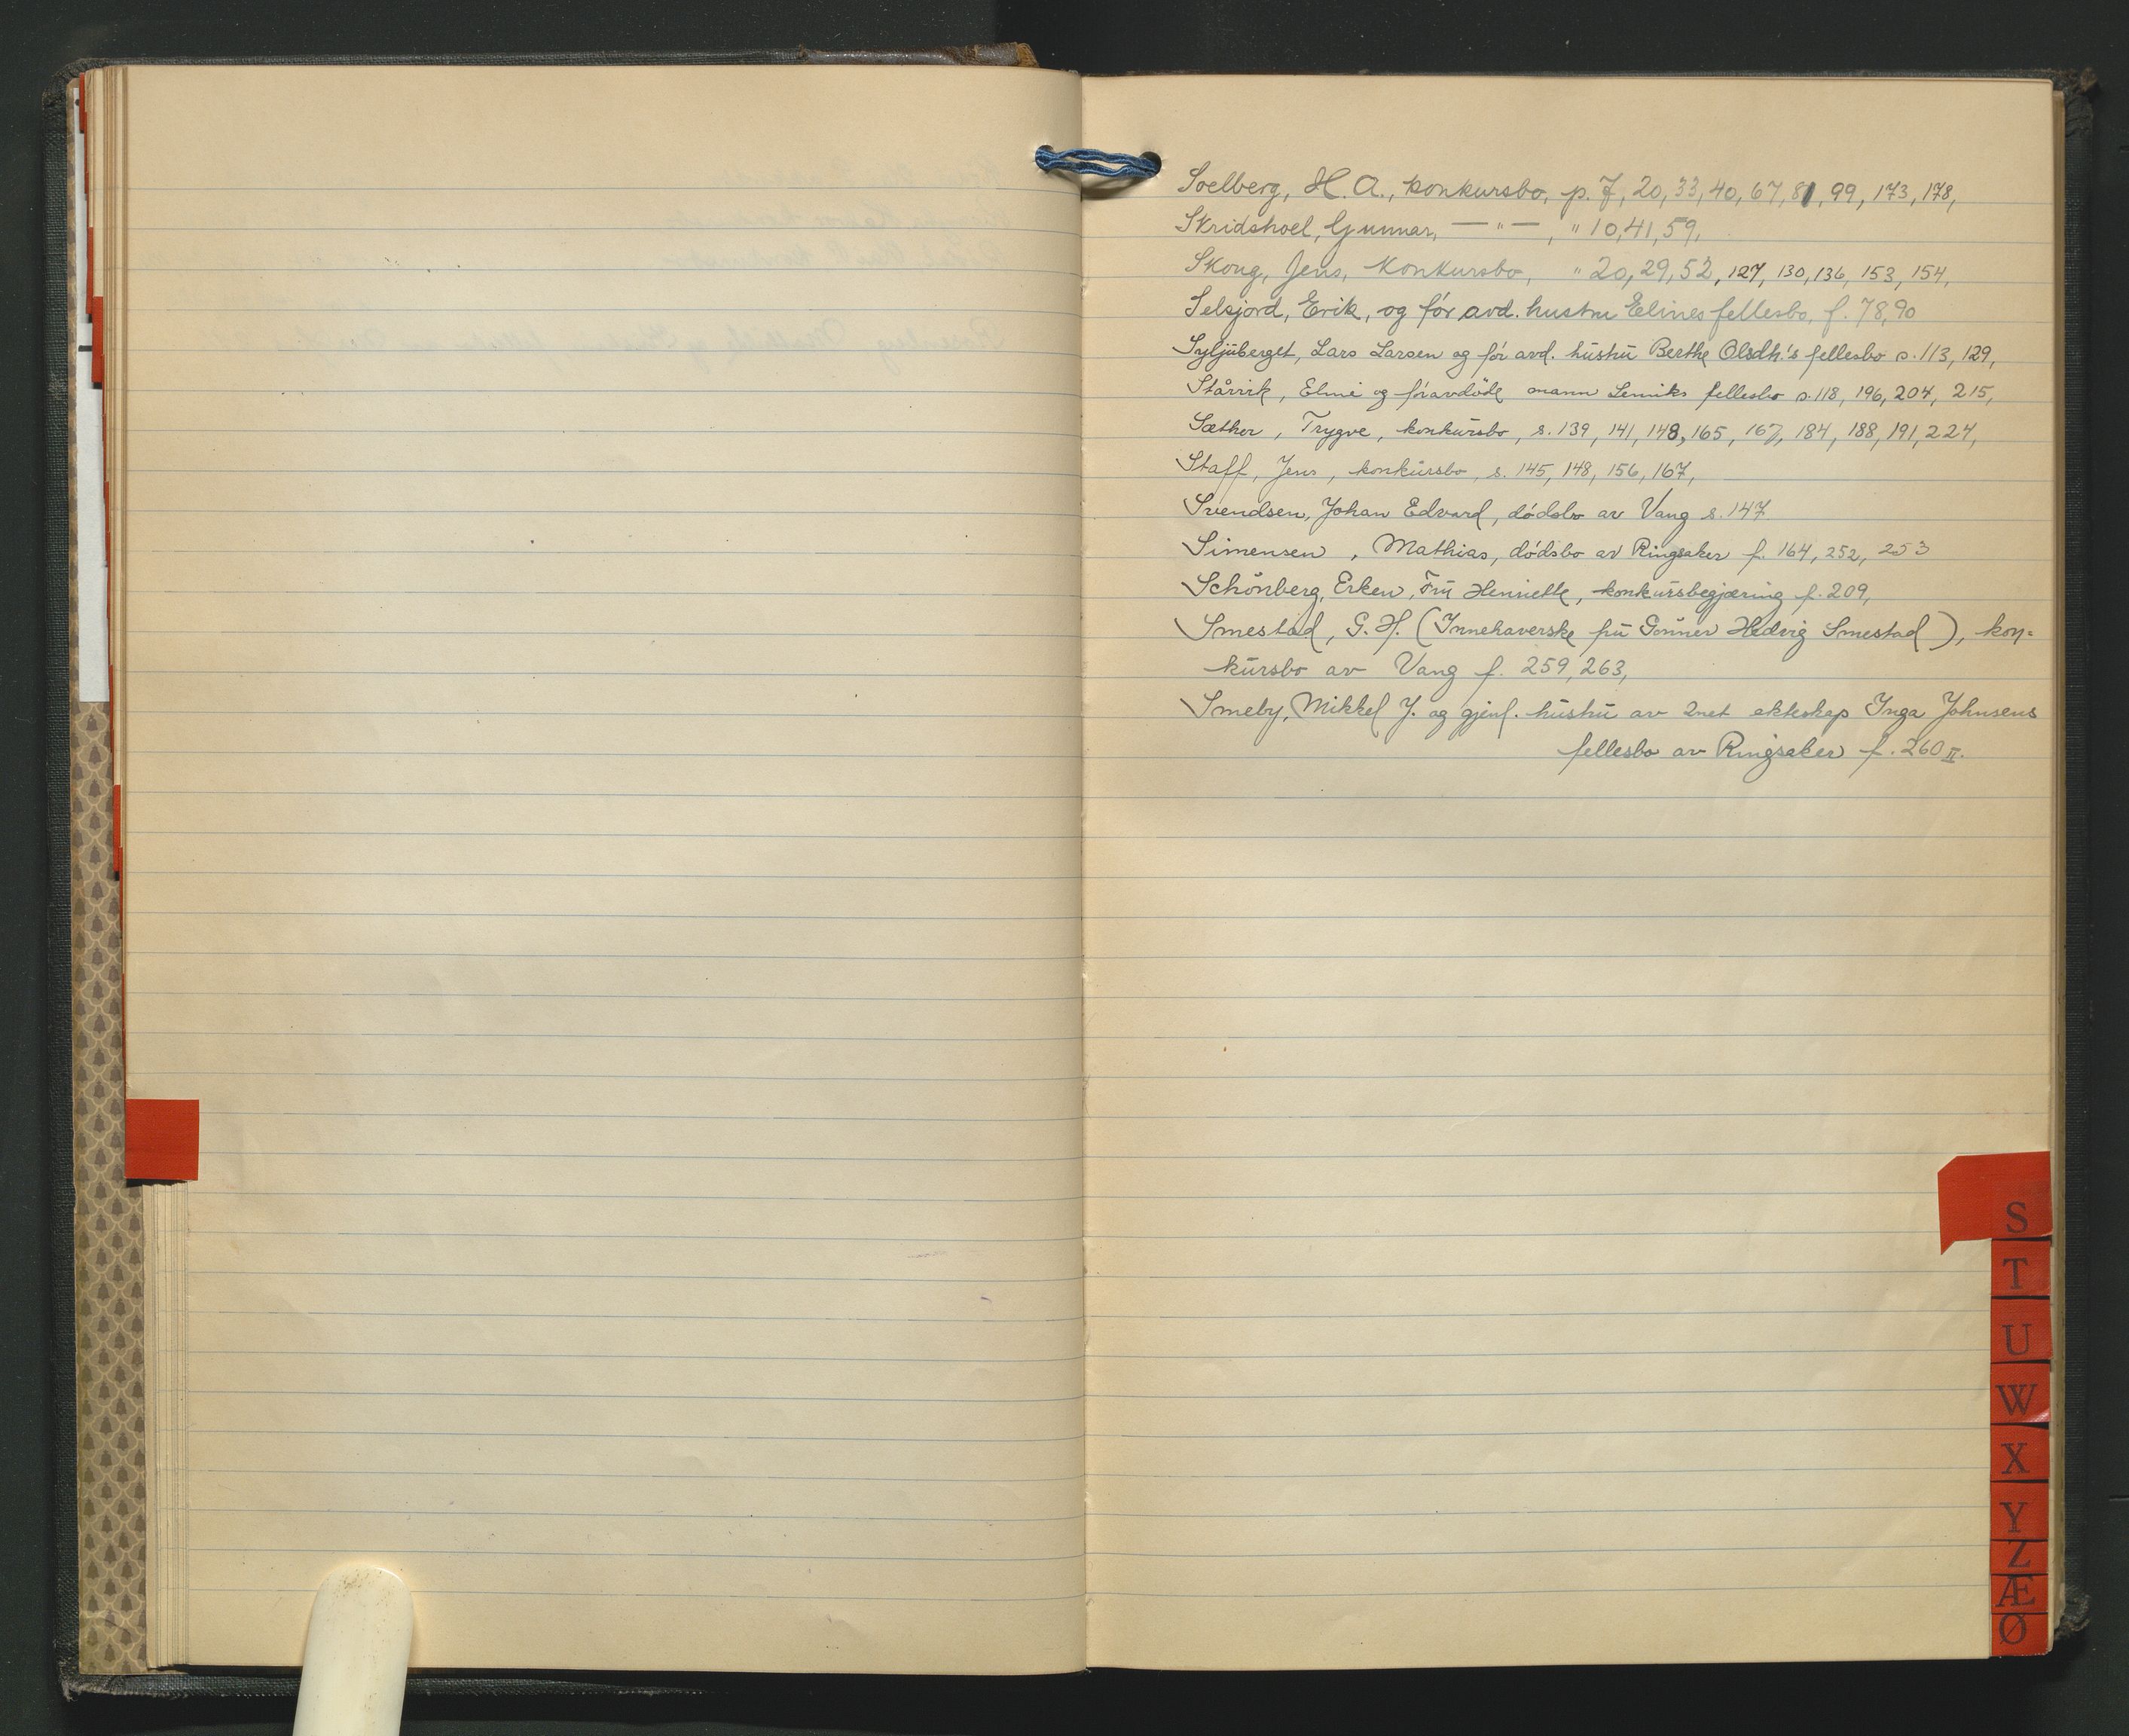 Soelberg, H. A., konkursbo, p. 7, 20, 33, 40, 67, 81, 99, 173, 178,
Skridshoel, Gunnar, — " — , " 10, 41, 59,
Skong, Jens, Konkursbo, " 20, 29, 52, 127, 130, 136, 153, 154,
Selsjord, Erik, og før avd. hustru Elines fellesbo, f. 78, 90
Syljuberget, Lars Larsen og før avd. hustru Berthe Olsdh.'s fellesbo s. 113, 129,
og føravdöde mann fellesbo s. 118, 196, 204, 215,
Sæther, Trygve, konkursbo, s. 139, 141, 148, 165, 167, 184, 188, 191, 224,
Staff, Jens, konkursbo, s. 145, 148, 156, 167,
Svendsen, Johan Edvard, dødsbo av Vang s. 147
Simensen, Mathias, dødsbo av Ringsaker f. 164, 252, 253
Schönberg, Erken, Fru Henriette, konkursbegjæring f. 209,
Smestad, G. H. (Innehaverske fru Gunner Hedvig Smestad), kon=
kursbo av Vang f. 259, 263,
Smeby, Mikkel J. og gjenl. hustru av 2net ekteskap Inga Johnsens
fellesbo av Ringsaker f. 260 II.
S
T
U
W
X
Y
Z
Æ
Ø